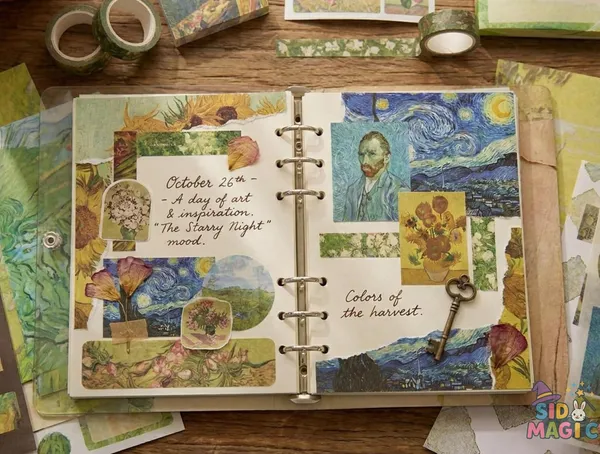 October 26th -
- A day of art
& inspiration.
"The Starry Night"
mood.
Colors of
the harvest.
SID
MAGIC